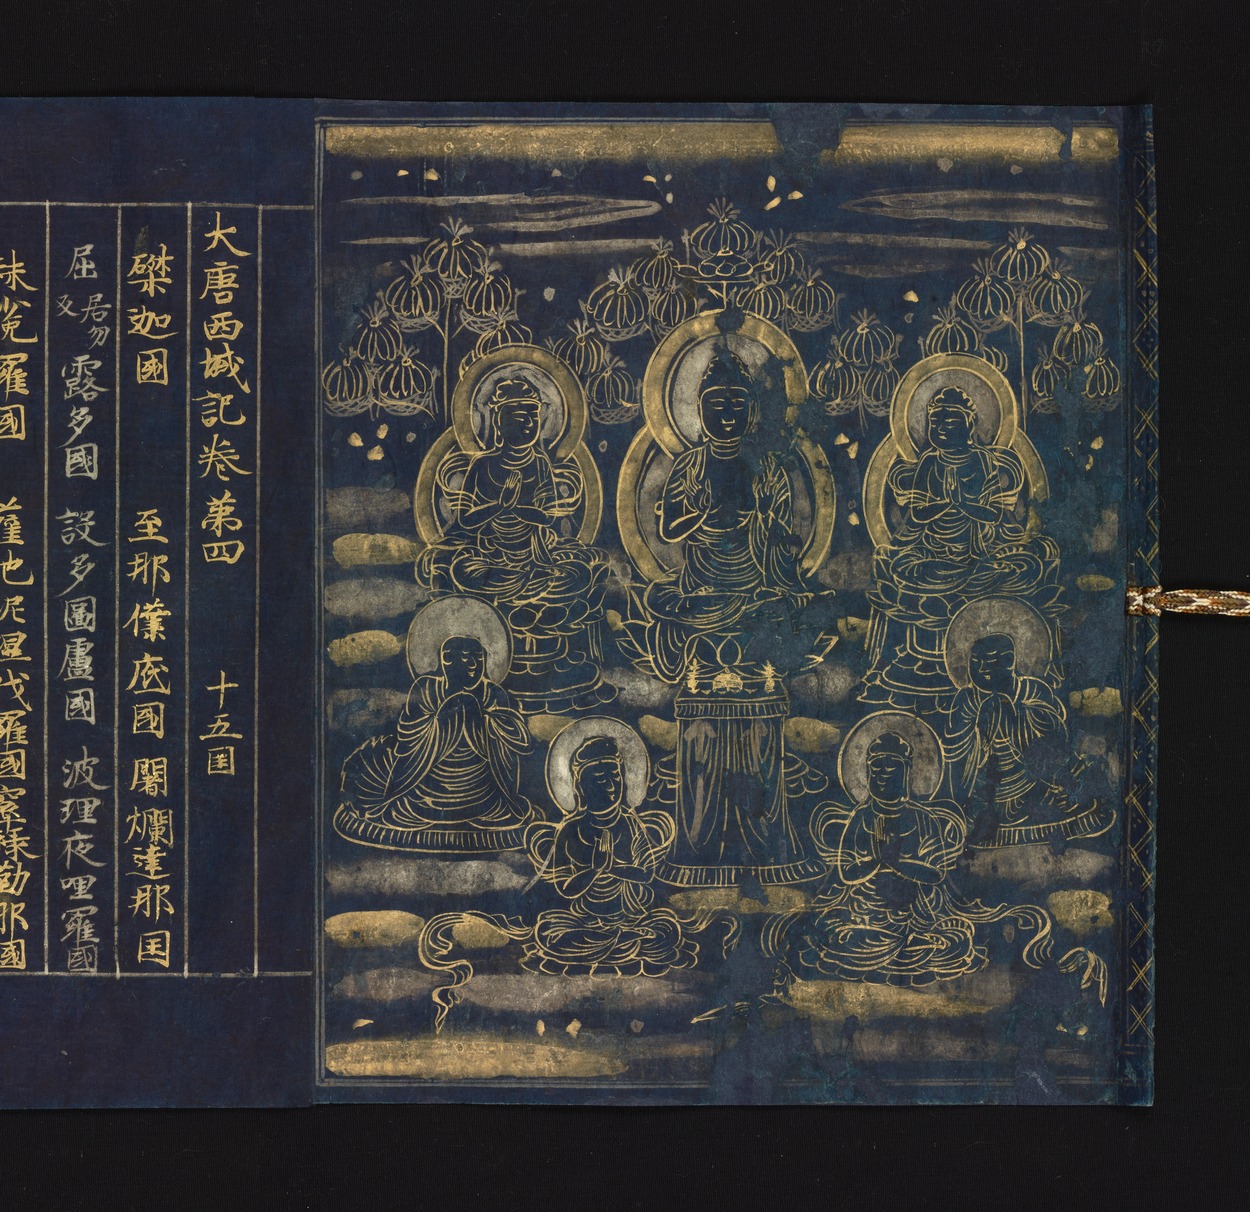 大唐西域記卷第四 十五国
磔迦國 至那僕底國 闍爛達那国
屈居勿反露多國 設多圖盧國 波理夜呾羅國
秣兔羅國 薩他泥湿伐羅國 窣祿勤那國